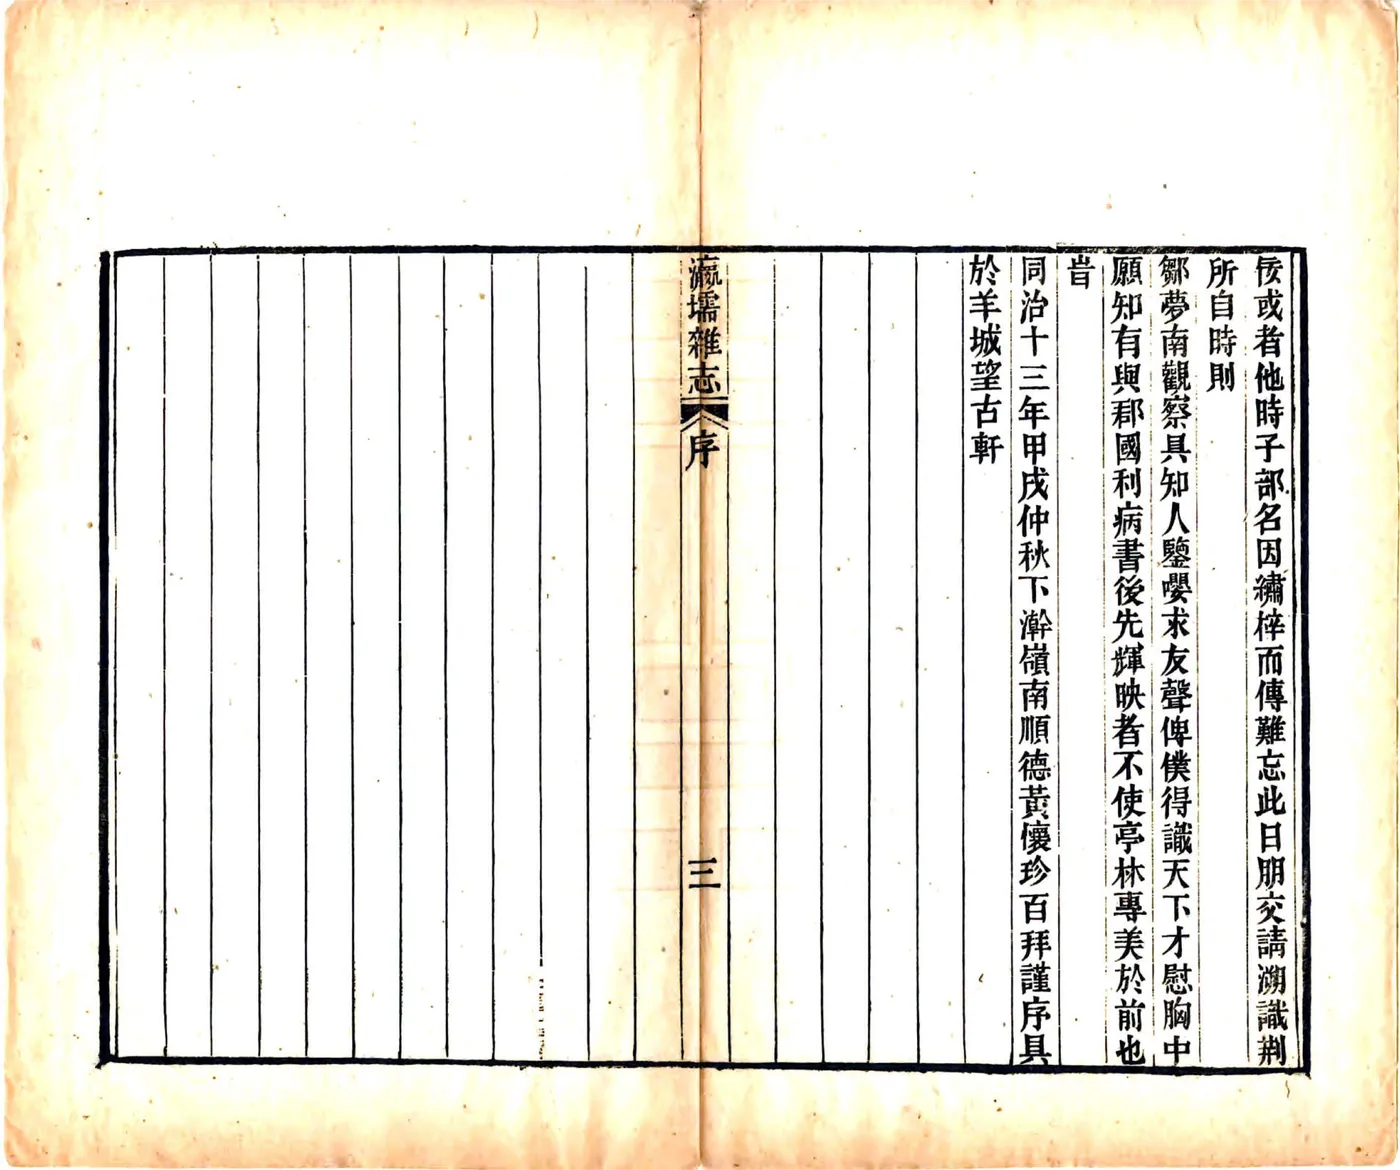 佞或者他時子部名因繡梓而傳難忘此日朋交請溯識荆
所自時則
鄒夢南觀察具知人鑒嚶求友聲俾僕得識天下才慰胸中
願知有與郡國利病書後先輝映者不使亭林專美於前也
旹
同治十三年甲戌仲秋下澣嶺南順德黃懷珍百拜謹序具
於羊城望古軒
瀛壖雜志
序
三